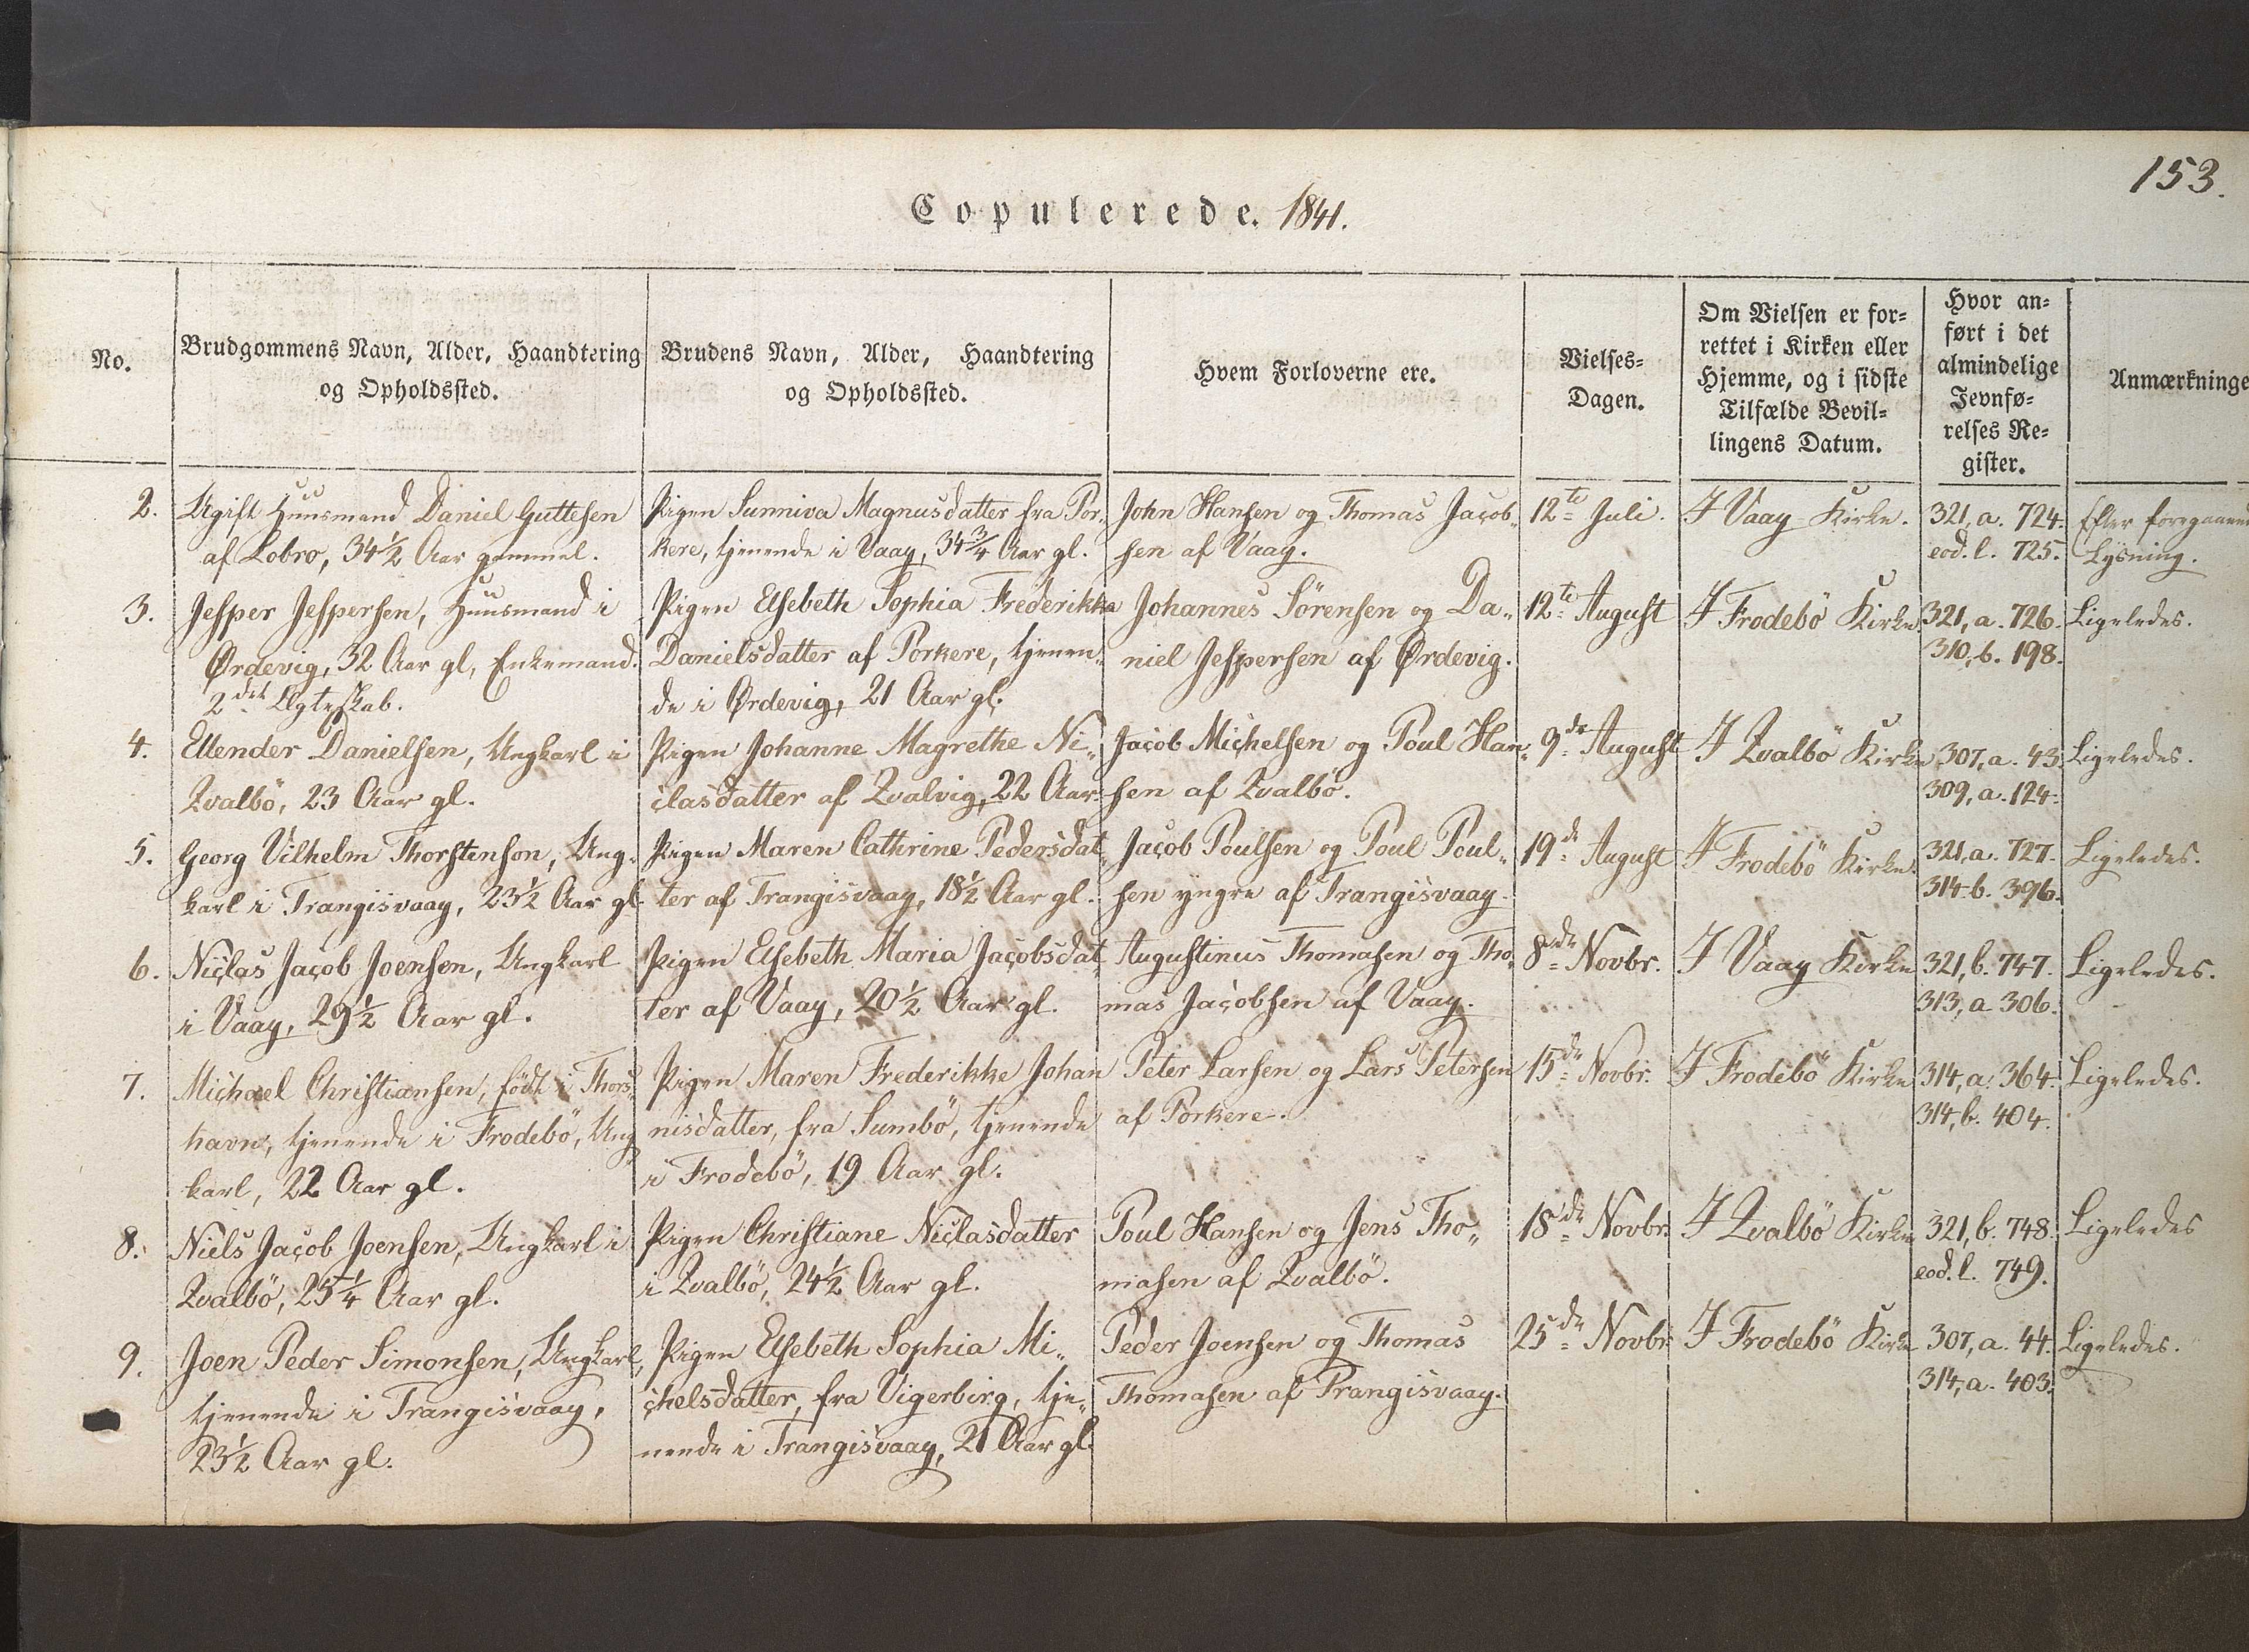 153.
Copulerede. 1841.
No.
Brudgommens Navn, Alder, Haandtering
og Opholdssted.
Brudens Navn, Alder, Haandtering
og Opholdssted.
Hvem Forloverne ere.
Vielses-
Dagen.
Om Vielsen er for-
rettet i Kirken eller
Hjemme, og i sidste
Tilfælde Bevil-
lingens Datum.
Hvor an-
ført i det
almindelige
Jevnfø-
relses Re-
gister.
Anmærkninge
2.
Ugift Huusmand Daniel Guttesen
af Lobro, 34½ Aar gammel.
Pigen Sunniva Magnusdatter fra Por-
kere, tjenende i Vaag, 34¾ Aar gl.
John Hansen og Thomas Jacob-
sen af Vaag.
12te Juli.
I Vaag Kirke.
321, a. 724.
eod. l. 725.
Efter foregaaend
Lysning.
3.
Jesper Jespersen, Huusmand i
Ørdevig, 32 Aar gl, Enkemand.
2det Ægteskab.
Pigen Elsebeth Sophia Frederikka
Danielsdatter af Porkere, tjenen-
de i Ørdevig, 21 Aar gl.
Johannes Sörensen og Da-
niel Jespersen af Ørdevig.
12te August
I Frodebö Kirke
321, a. 726.
310, b. 198.
Ligeledes.
4.
Ellender Danielsen, Ungkarl i
Qvalbö, 23 Aar gl.
Pigen Johanne Magrethe Ni-
clasdatter af Qvalvig, 22 Aar
Jacob Michelsen og Poul Han-
sen af Qvalbö.
9de August
I Qvalbö Kirke
307, a. 43.
309, a. 124.
Ligeledes.
5.
Georg Vilhelm Thorstenson, Ung-
karl i Trangisvaag, 23½ Aar gl.
Pigen Maren Cathrine Pedersdat-
ter af Trangisvaag, 18½ Aar gl.
Jacob Poulsen og Poul Poul-
sen yngre af Trangisvaag.
19de August
I Frodebö Kirke.
321, a. 727.
314 b. 396.
Ligeledes.
6.
Niclas Jacob Joensen, Ungkarl
i Vaag, 29½ Aar gl.
Pigen Elsebeth Maria Jacobsdat-
ter af Vaag, 20½ Aar gl.
Augustinus Thomasen og Tho-
mas Jacobsen af Vaag.
8de Novbr.
I Vaag Kirke
321, b. 747.
313, a 306.
Ligeledes.
7.
Michael Christiansen, födt i Thors-
havn, tjenende i Frodebö, Ung-
karl, 22 Aar gl.
Pigen Maren Frederikke Johan
nisdatter, fra Sumbö, tjenende
i Frodebö, 19 Aar gl.
Peter Larsen og Lars Petersen
af Porkere.
15de Novbr.
I Frodebö Kirke
314, a. 364.
314, b. 404.
Ligeledes.
8.
Niels Jacob Joensen, Ungkarl i
Qvalbö, 25¼ Aar gl.
Pigen Christiane Niclasdatter
i Qvalbö, 24½ Aar gl.
Poul Hansen og Jens Tho-
masen af Qvalbö.
18de Novbr.
I Qvalbö Kirke
321, b. 748.
eod. l. 749.
Ligeledes
9.
Joen Peder Simonsen, Ungkarl,
tjenende i Trangisvaag,
23½ Aar gl.
Pigen Elsebeth Sophia Mi-
chelsdatter, fra Vigerbirg, tje-
nende i Trangisvaag, 21 Aar gl.
Peder Joensen og Thomas
Thomasen af Trangisvaag.
25de Novbr
I Frodebö Kirke
307, a. 44.
314, a. 403.
Ligeledes.